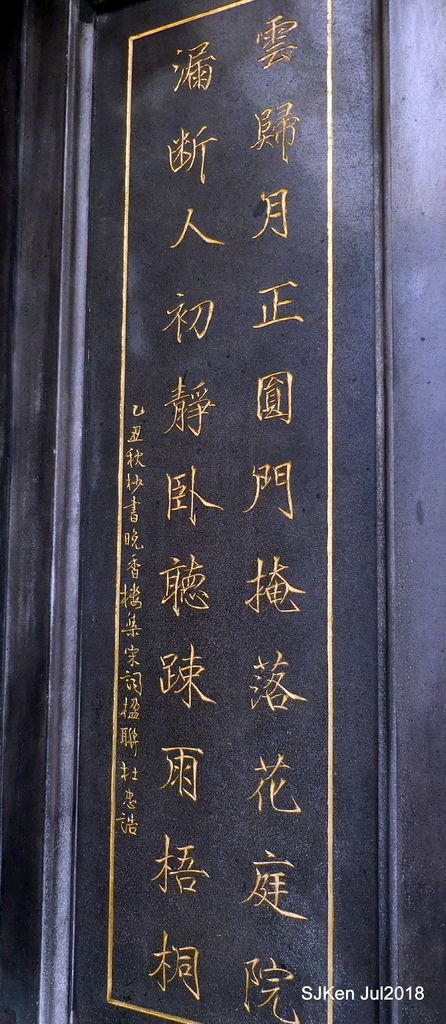 雲歸月正圓門掩落花庭院
漏断人初靜卧聽踈雨梧桐
乙丑秋杪書晚香樓集宋詞楹聯杜忠誥
SJKen Jul2018